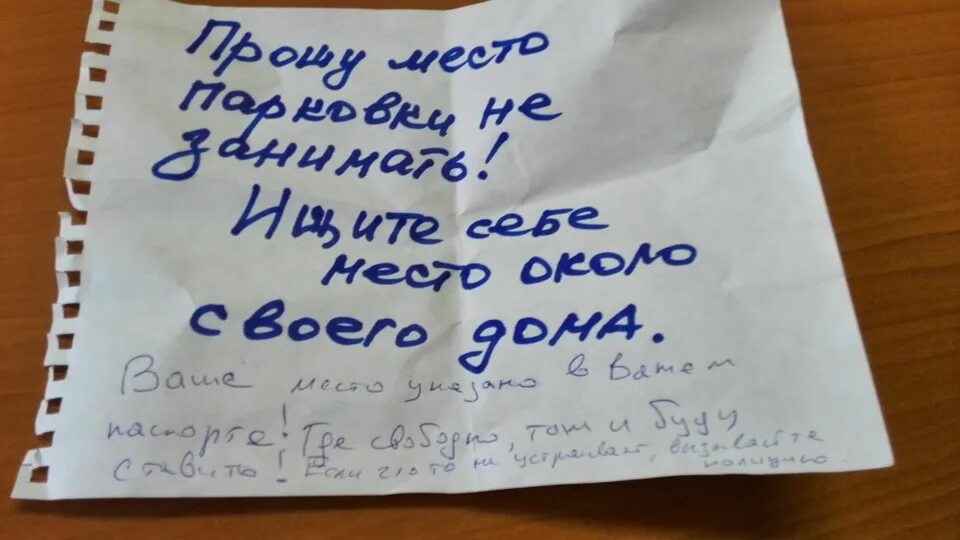 Прошу место
парковки не
занимать!
Ищите себе
место около
своего дома.
Ваше место указано в Вашем
паспорте! Где свободно, там и буду
ставить! Если что то не устраивает, вызывайте
полицию.